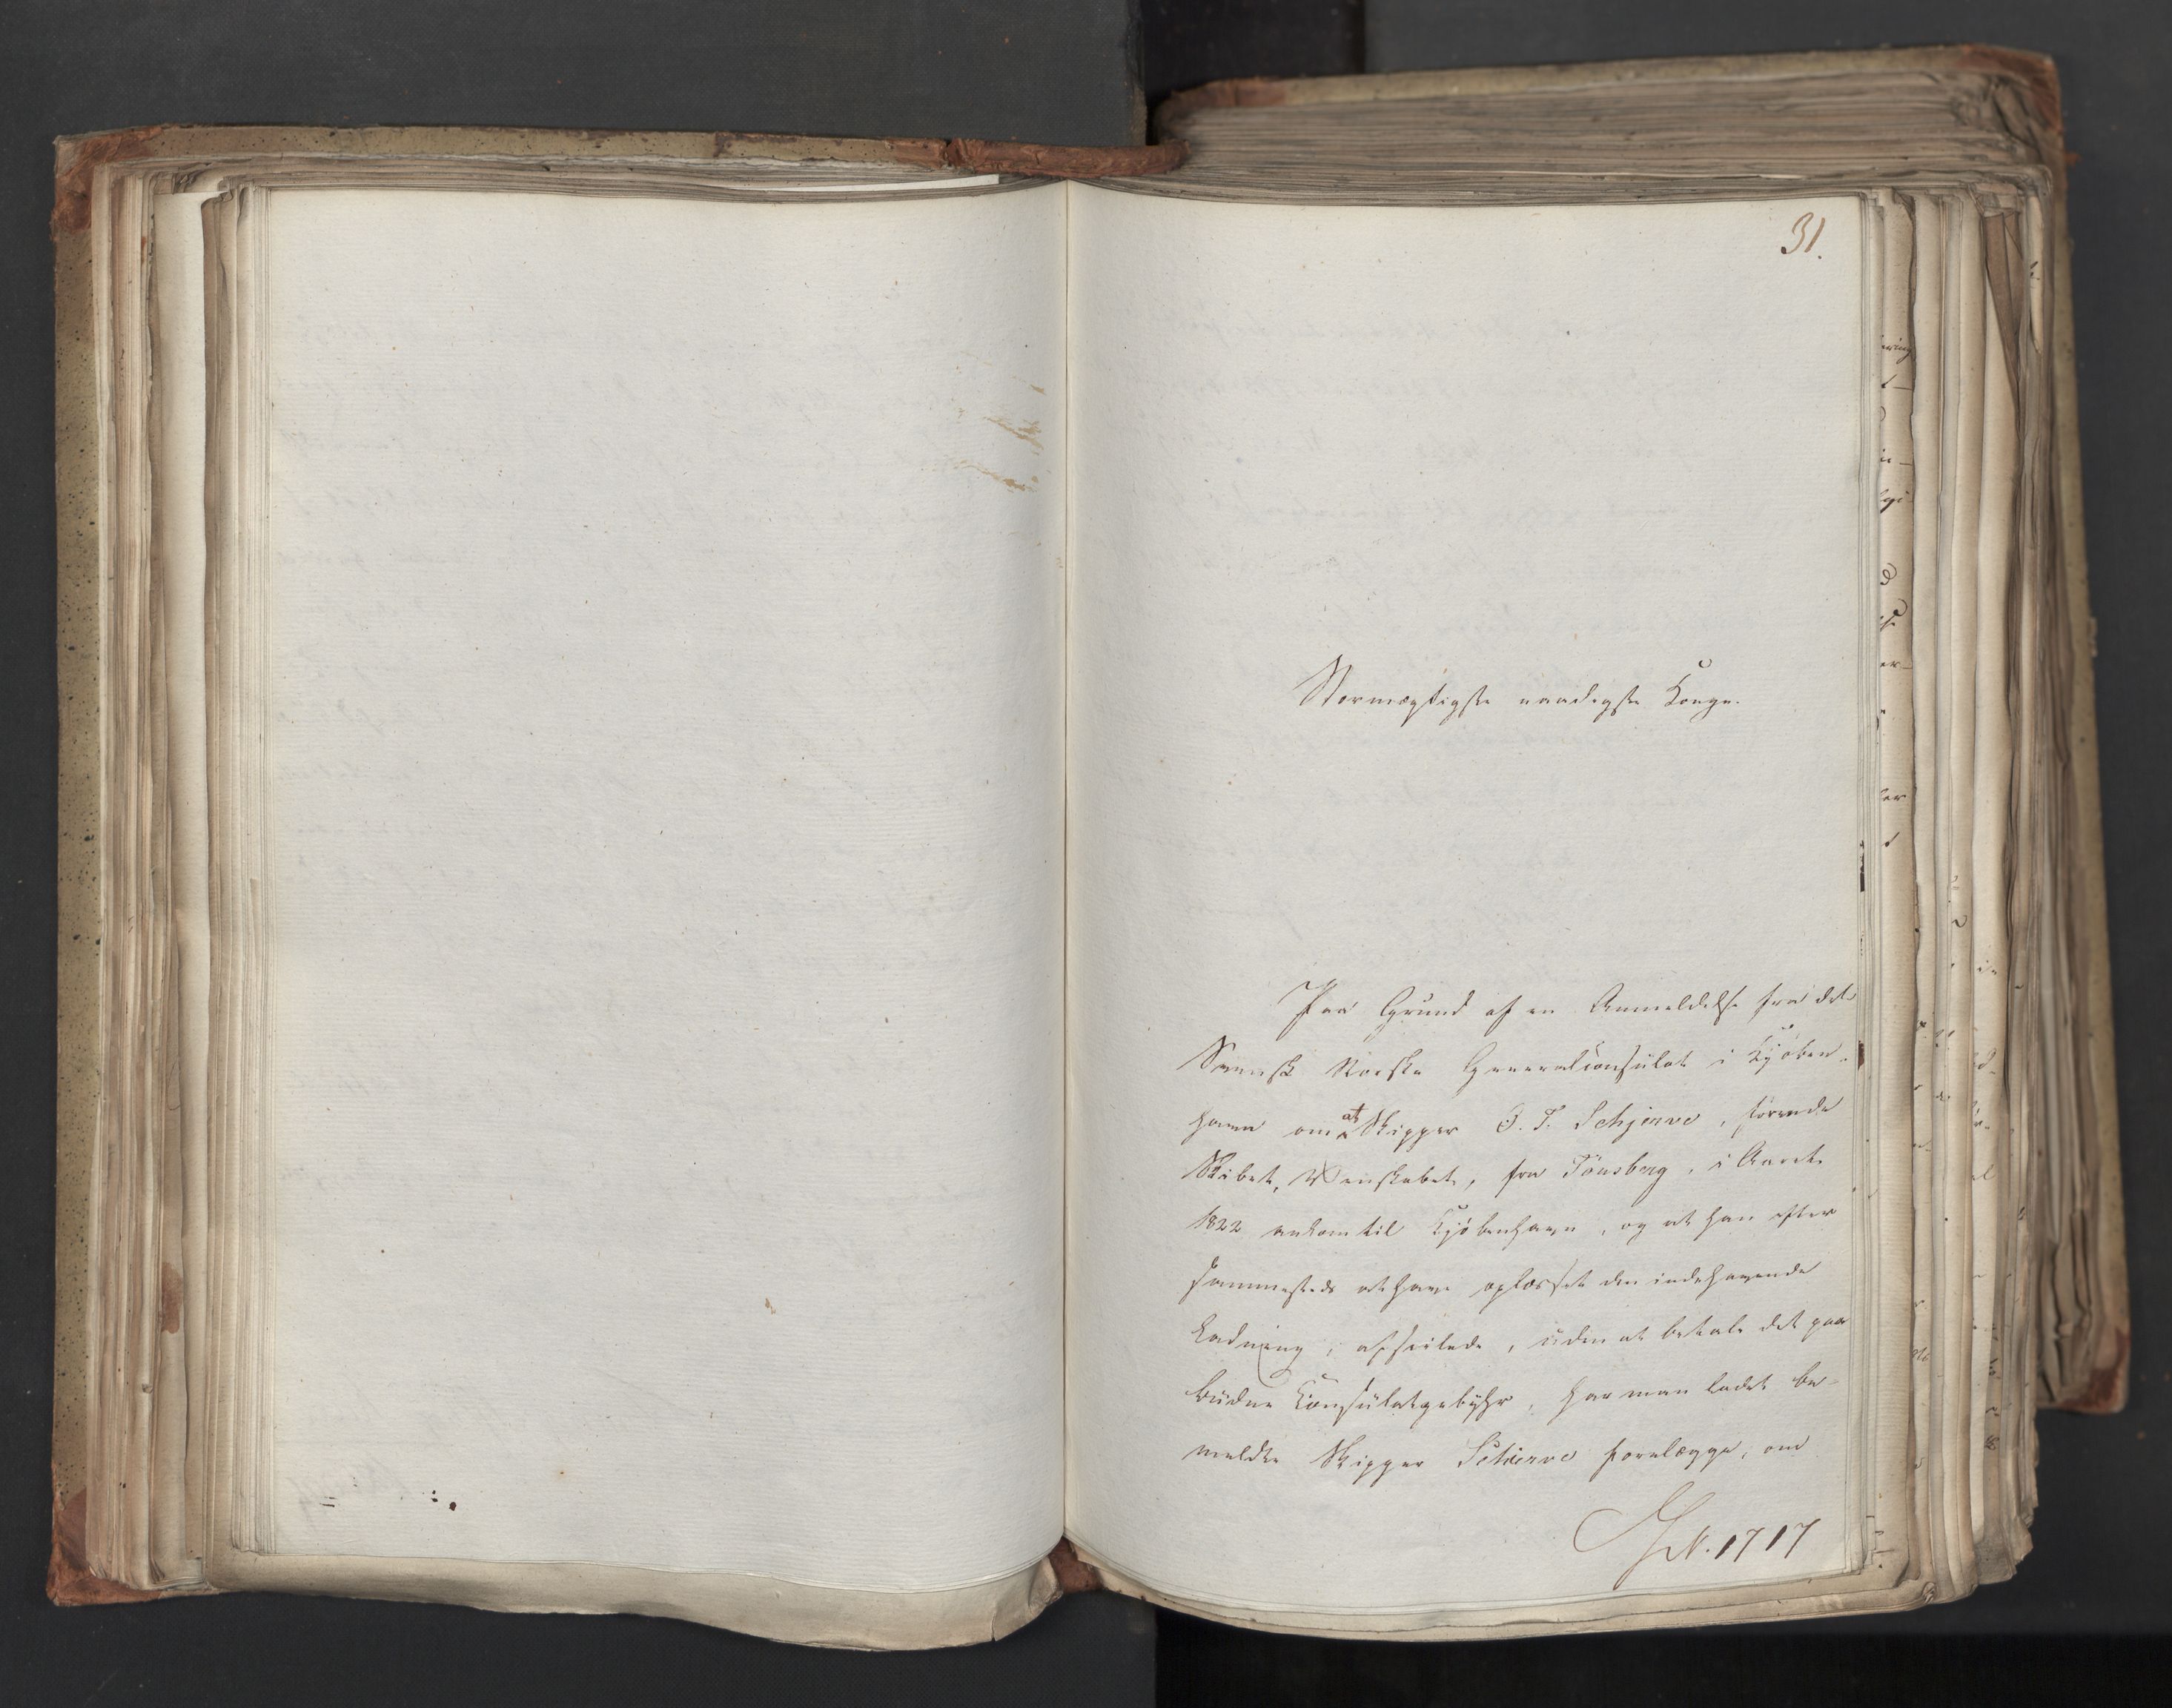 31.
Stormægtigste naadigste Konge.
Paa Grund af en Anmeldelse fra det
Svensk Norske Generalconsulat i Kjøben-
havn om at Skipper O. T. Schjerve, förende
Skibet, Venskabet, fra Tönsberg, i Aaret
1822 ankom til Kjöbenhavn, og at han efter
sammesteds at have oplosset den indehavende
Ladning, afseilede, uden at betale det paa
budne Consulatgebyhr, har man ladet be-
meldte Skipper Schierve forelægge, om
N. 1717